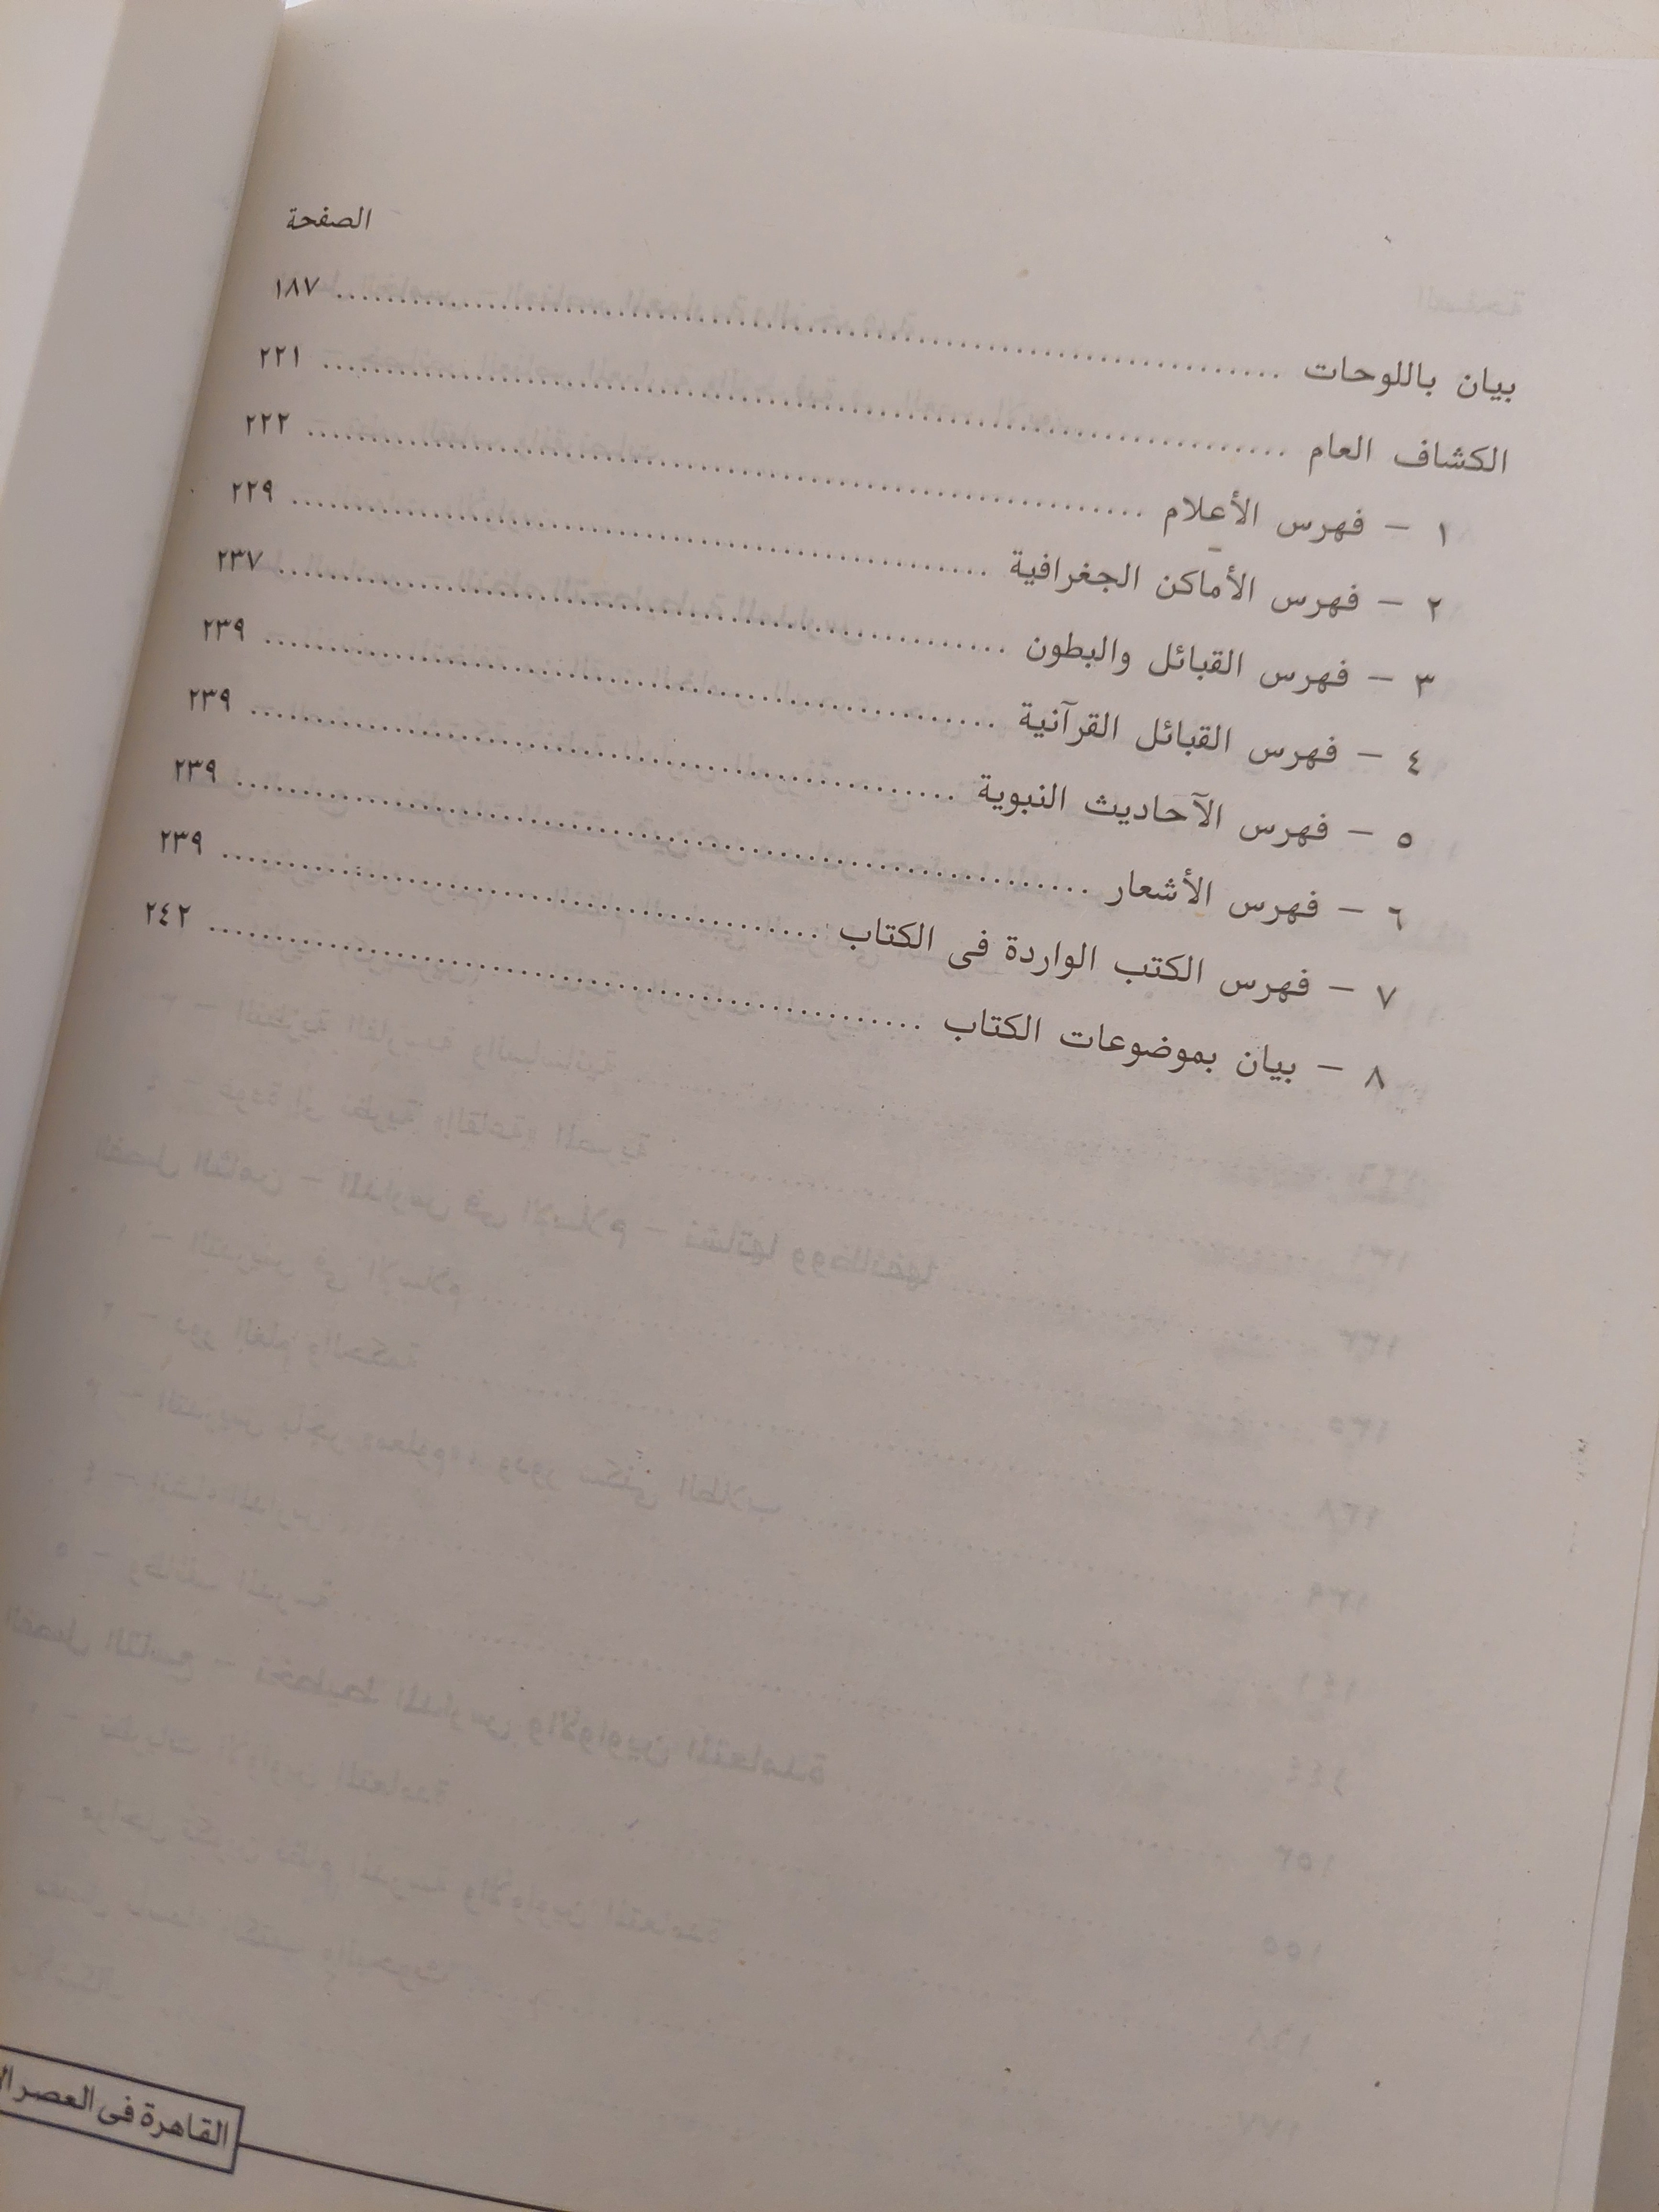 الصفحة
بيان باللوحات ........ ١٨٧
الكشاف العام ........ ٢٢١
١ – فهرس الأعلام ........ ٢٢٢
٢ – فهرس الأماكن الجغرافية ........ ٢٢٩
٣ – فهرس القبائل والبطون ........ ٢٣٧
٤ – فهرس القبائل القرآنية ........ ٢٣٩
٥ – فهرس الآحاديث النبوية ........ ٢٣٩
٦ – فهرس الأشعار ........ ٢٣٩
٧ – فهرس الكتب الواردة فى الكتاب ........ ٢٣٩
٨ – بيان بموضوعات الكتاب ........ ٢٤٢
القاهرة فى العصر